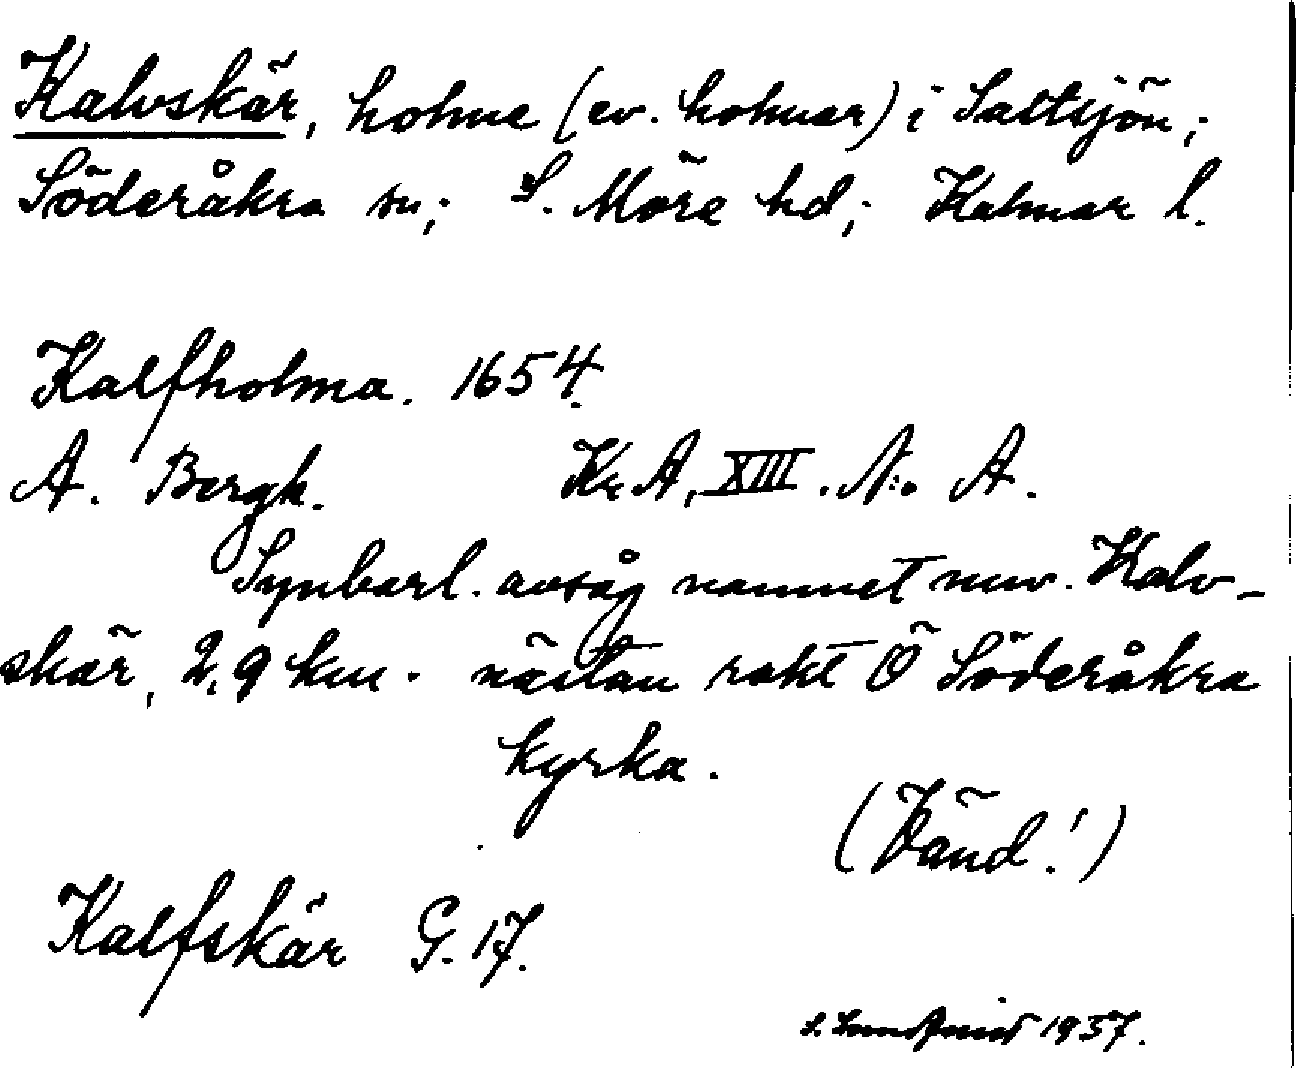 Kalvskär, holme (ev. holmar) i Saltsjön;
Söderåkra sn; S. Möre hd; Kalmar l.
Kalfholma. 1654.
A. Bergh. Kr.A, XIII. N:o A.
Synbarl. avsåg namnet nuv. Kalv-
skär, 2,9 km. nästan rakt Ö Söderåkra
kyrka.
(Vänd!)
Kalfskär G. 17.
S. Lundquist 1957.